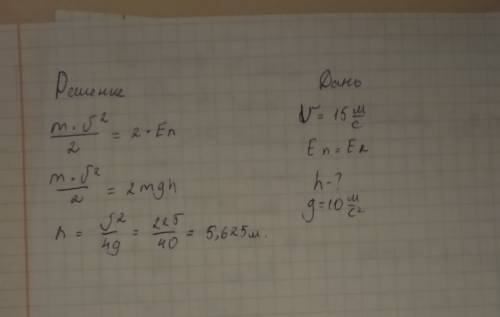 Решение
m·υ²/2 = 2·Eп
m·υ²/2 = 2mgh
h = υ²/4g = 225/40 = 5,625м.
Дано
υ = 15 м/с
Eп = Eк
h - ?
g = 10 м/с²